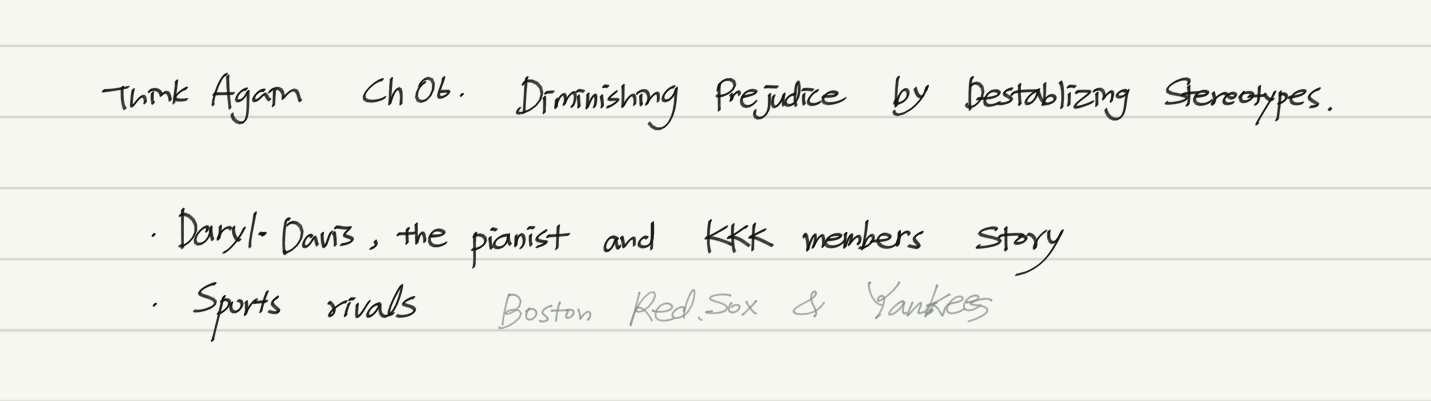 Think Again Ch 06. Diminishing Prejudice by Destablizing Stereotypes.
· Daryl Davis, the pianist and KKK members Story
· Sports rivals Boston Red.Sox & Yankees